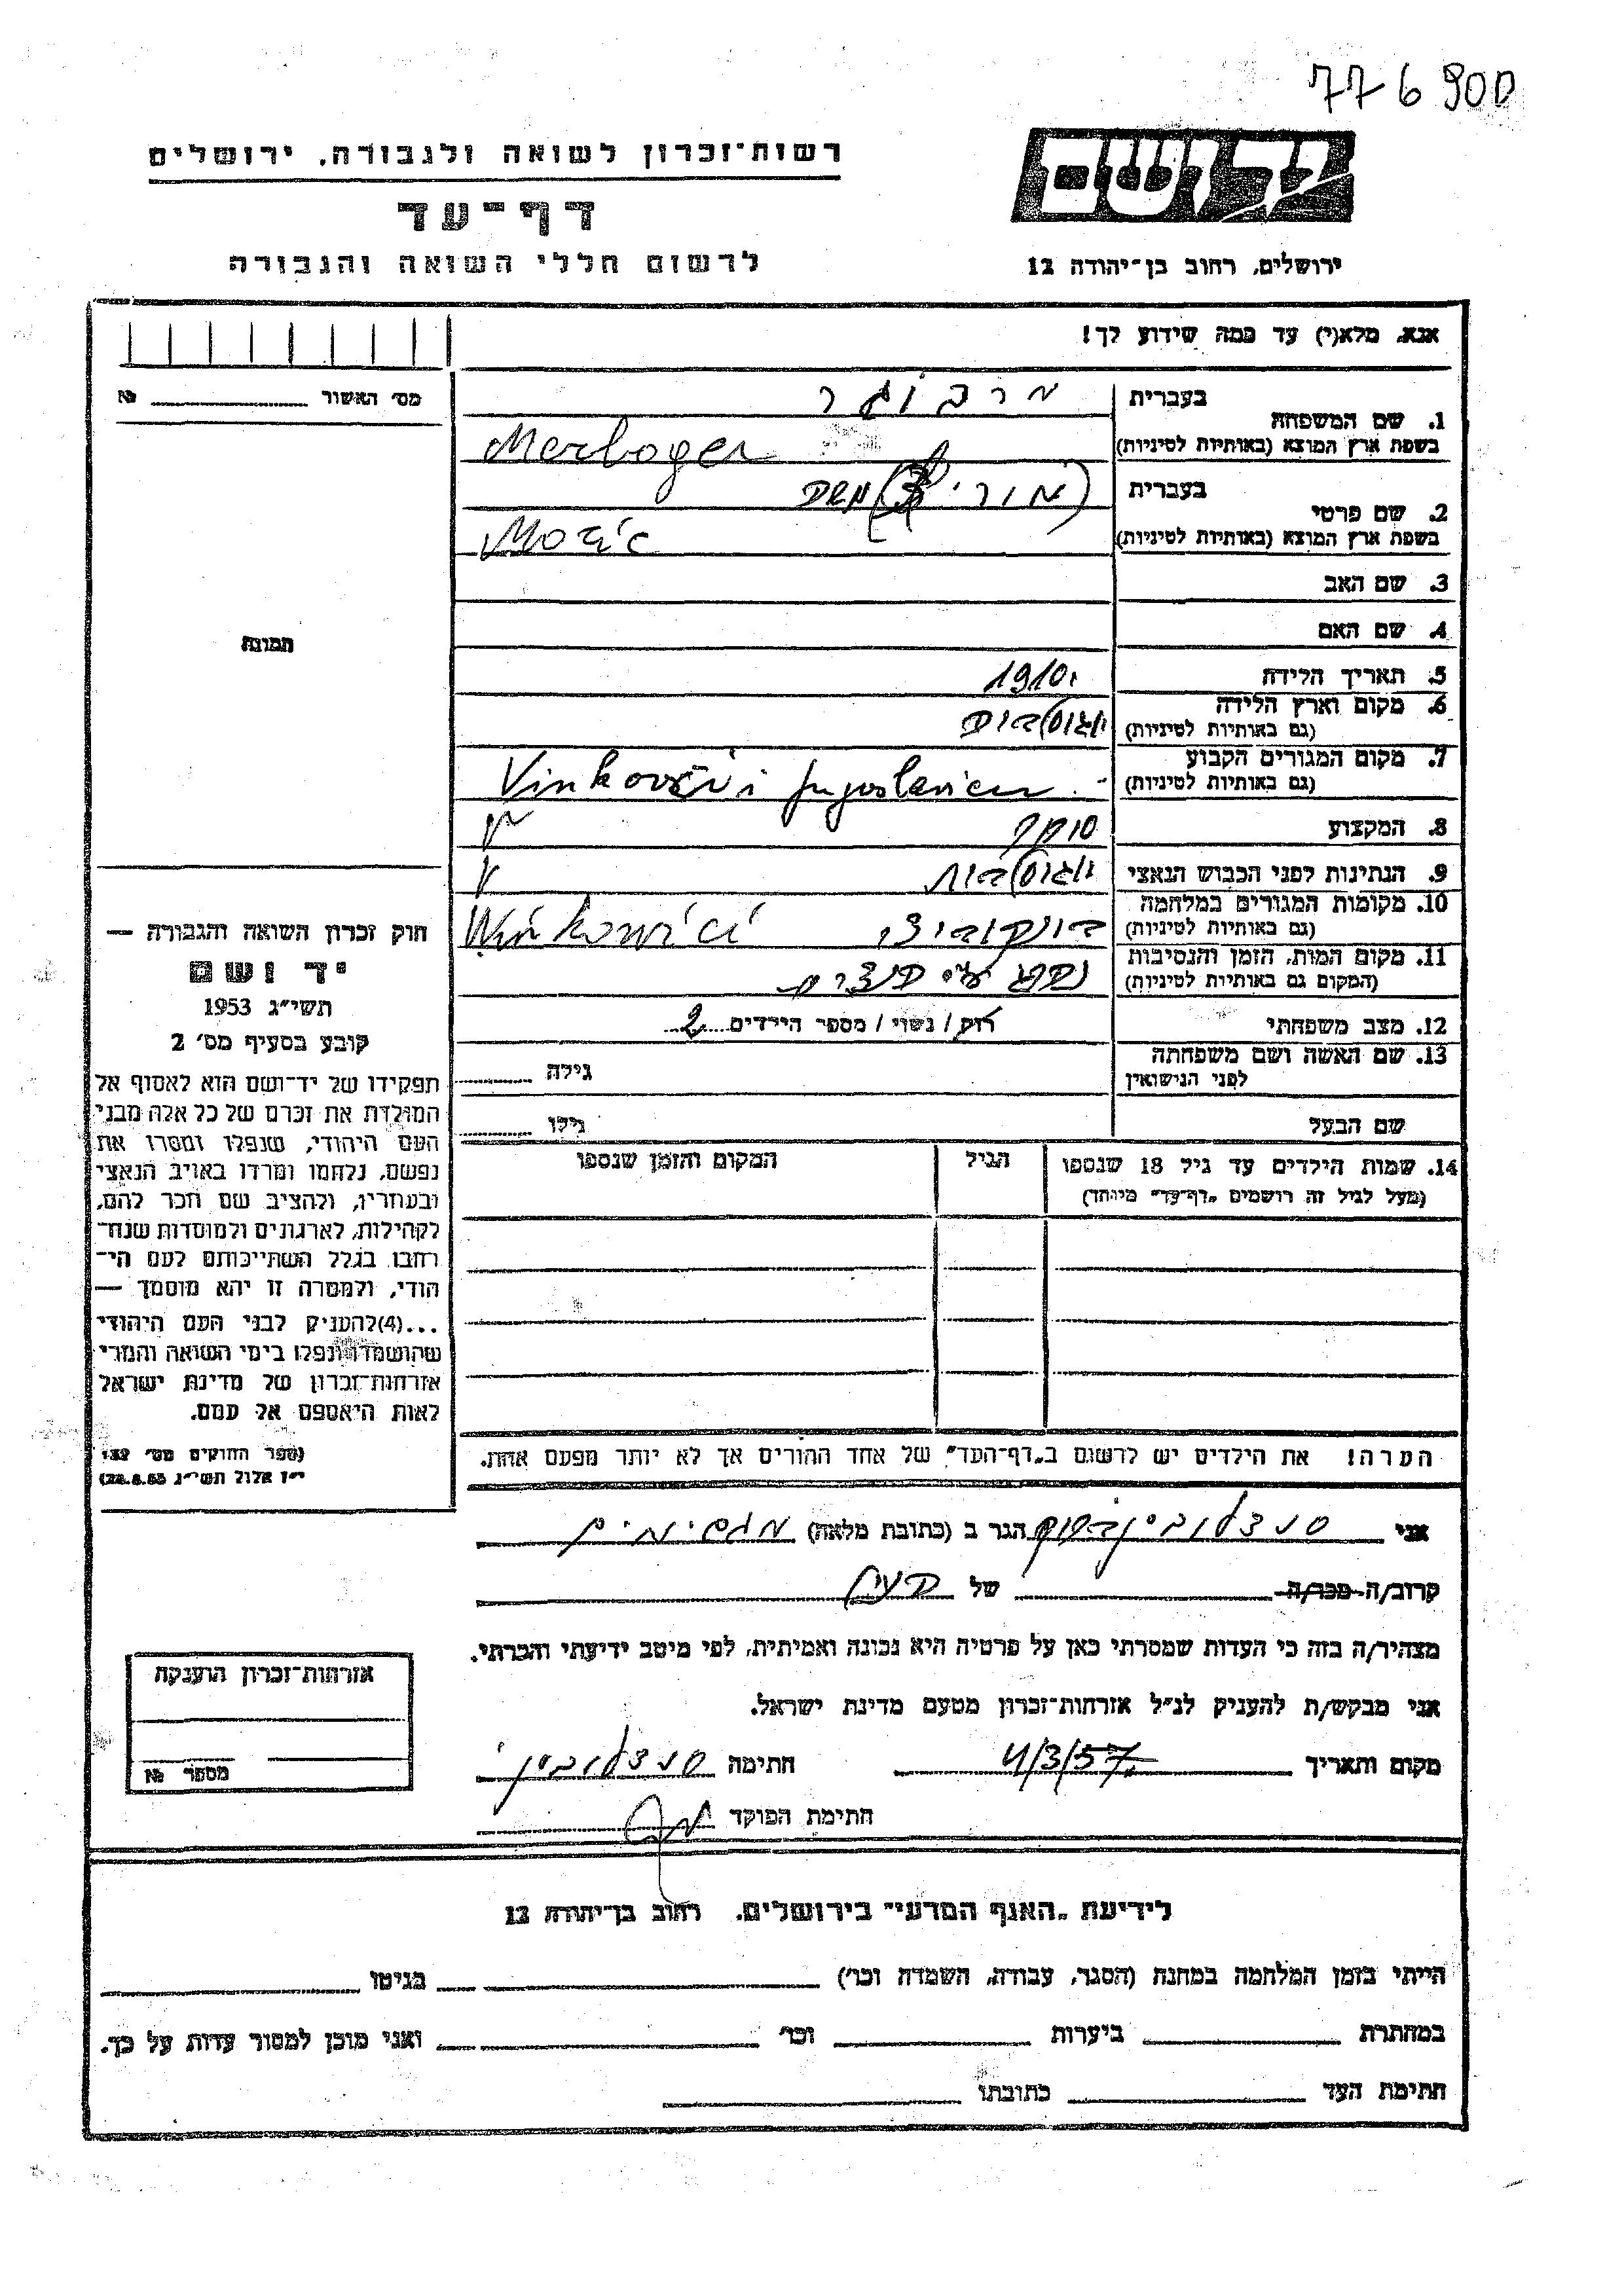 776900
רשות־זכרון לשואה ולגבורה, ירושלים
יד ושם
דף־עד
לרשום חללי השואה והגבורה
ירושלים, רחוב בן־יהודה 12
אנא, מלא(י) עד כמה שידוע לך!
מס׳ האשור №
1. שם המשפחה
בעברית מרבוגר
בשפת ארץ המוצא (באותיות לטיניות) Merboger
2. שם פרטי
בעברית
בשפת ארץ המוצא (באותיות לטיניות)
3. שם האב
4. שם האם
תמונה
5. תאריך הלידה 1910
6. מקום וארץ הלידה
(גם באותיות לטיניות) יוגוסלביה
7. מקום המגורים הקבוע
(גם באותיות לטיניות) Vinkovči Jugoslavien
8. המקצוע סוחר
9. הנתינות לפני הכבוש הנאצי יוגוסלבית
10. מקומות המגורים במלחמה
(גם באותיות לטיניות) וינקוביצי Winkowici
11. מקום המות, הזמן והנסיבות
(המקום גם באותיות לטיניות)
12. מצב משפחתי רוק / נשוי / מספר הילדים 2
13. שם האשה ושם משפחתה
לפני הנישואין גילה
שם הבעל גילו
14. שמות הילדים עד גיל 18 שנספו
(מעל לגיל זה רושמים „דף־עד״ מיוחד)
הגיל
המקום והזמן שנספו
הערה! את הילדים יש לרשום ב„דף־העד״ של אחד ההורים אך לא יותר מפעם אחת.
חוק זכרון השואה והגבורה —
יד ושם
תשי״ג 1953
קובע בסעיף מס׳ 2
תפקידו של יד־ושם הוא לאסוף אל
המולדת את זכרם של כל אלה מבני
העם היהודי, שנפלו ומסרו את
נפשם, נלחמו ומרדו באויב הנאצי
ובעוזריו, ולהציב שם וזכר להם,
לקהילות, לארגונים ולמוסדות שנח־
רבו בגלל השתייכותם לעם הי־
הודי, ולמטרה זו יהא מוסמך —
...(4)להעניק לבני העם היהודי
שהושמדו ונפלו בימי השואה והמרי
אזרחות־זכרון של מדינת ישראל
לאות היאספם אל עמם.
(ספר החוקים מס׳ 132
י״ז אלול תשי״ג 28.8.53)
אני הגר ב (כתובת מלאה)
קרוב/ה מכר/ה של
מצהיר/ה בזה כי העדות שמסרתי כאן על פרטיה היא נכונה ואמיתית, לפי מיטב ידיעתי והכרתי.
אני מבקש/ת להעניק לנ״ל אזרחות־זכרון מטעם מדינת ישראל.
מקום ותאריך 4/3/57 חתימה
חתימת הפוקד
אזרחות־זכרון הוענקה
מספר №
לידיעת „האגף המדעי״ בירושלים, רחוב בן־יהודה 12
הייתי בזמן המלחמה במחנה (הסגר, עבודה, השמדה וכו׳) בגיטו
במחתרת ביערות וכו׳ ואני מוכן למסור עדות על כך.
חתימת העד כתובתו